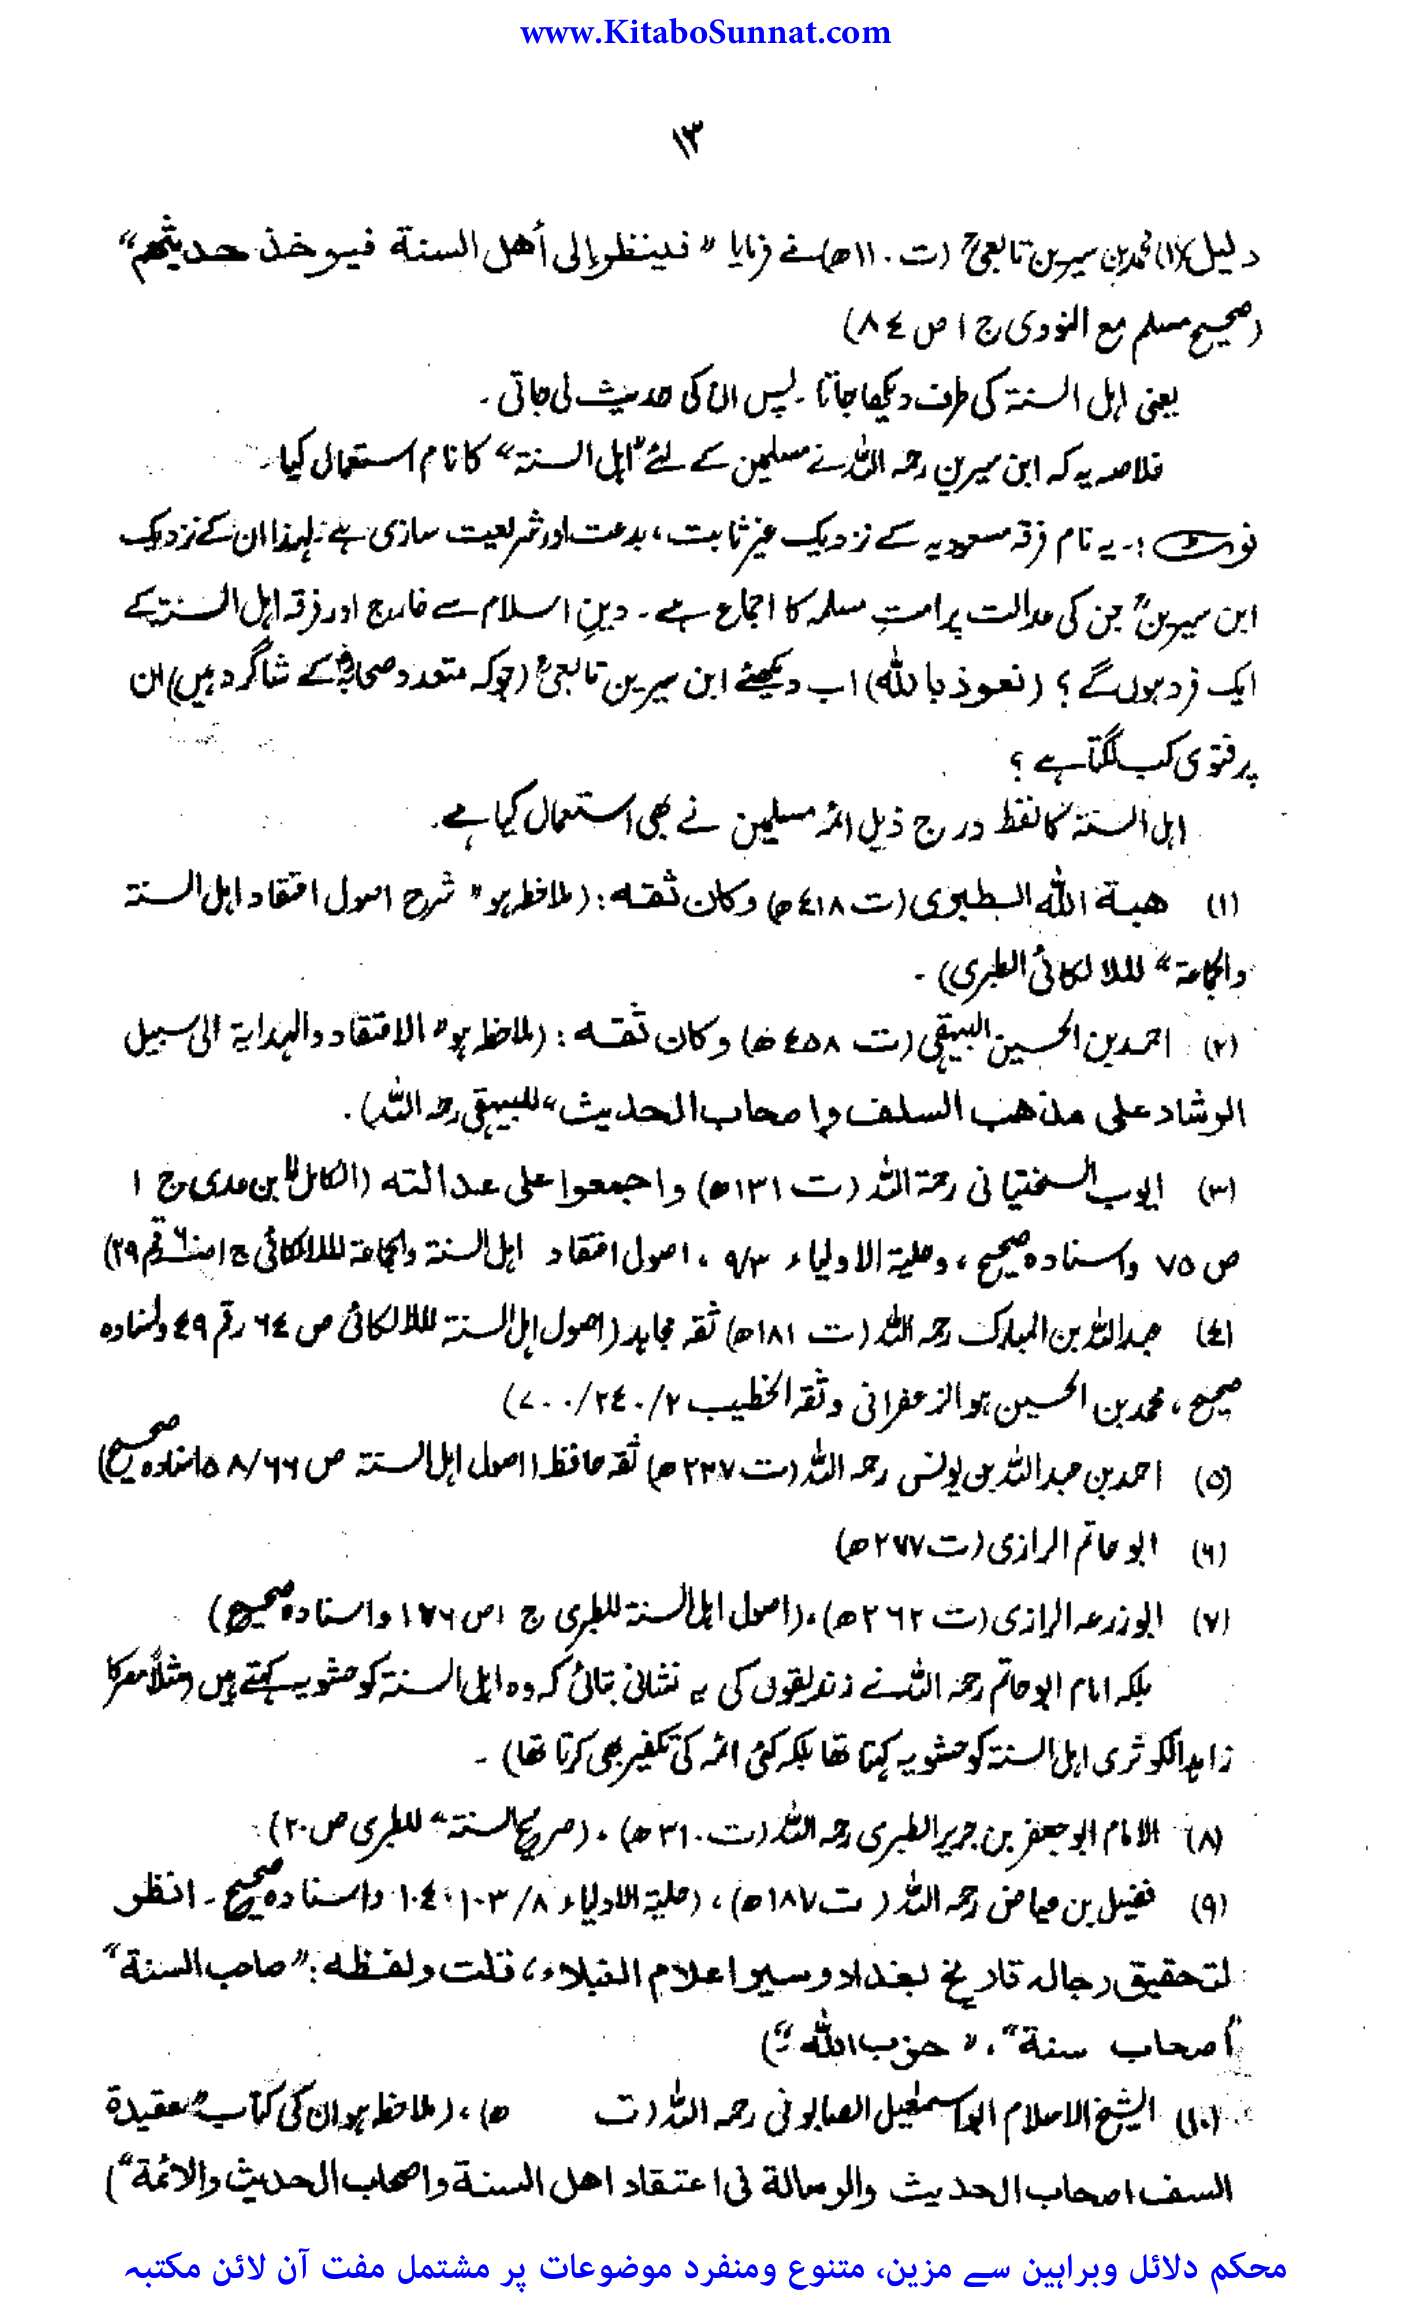 www.KitaboSunnat.com
١٣
دلیل (١) محمد بن سیرین تابعیؒ (ت ١١٠ھ) نے فرمایا "فینظر إلى أهل السنة فیوخذ حدیثهم"
(صحیح مسلم مع النووی ج ١ ص ٨٤)
یعنی اہل السنۃ کی طرف دیکھا جاتا ۔ پس ان کی حدیث لی جاتی ۔
خلاصہ یہ کہ ابن سیرین رحمہ اللہ نے مسلمین کے لئے "اہل السنۃ" کا نام استعمال کیا ۔
نوٹ :۔ یہ نام فرقہ مسعودیہ کے نزدیک غیر ثابت ، بدعت اور شریعت سازی ہے ۔ لہذا ان کے نزدیک
ابن سیرینؒ جن کی عدالت پر امتِ مسلمہ کا اجماع ہے ۔ دینِ اسلام سے خارج اور فرقہ اہل السنۃ کے
ایک فرد ہوں گے ؟ (نعوذ باللہ) اب دیکھئے ابن سیرین تابعیؒ (جو کہ متعدد صحابہؓ کے شاگرد ہیں) ان
پر فتوی کب لگتا ہے ؟
اہل السنۃ کا لفظ درج ذیل ائمہ مسلمین نے بھی استعمال کیا ہے ۔
(١) هبة الله الطبری (ت ٤١٨ھ) وکان ثقه : (ملاحظہ ہو "شرح اصول اعتقاد اہل السنۃ
والجماعۃ" للالکائی الطبری) ۔
(٢) احمد بن الحسین البیہقی (ت ٤٥٨ھ) وکان ثقه : (ملاحظہ ہو "الاعتقاد والہدایۃ الی سبیل
الرشاد علی مذهب السلف واصحاب الحدیث" للبیہقی رحمہ اللہ) ۔
(٣) ایوب السختیانی رحمۃ اللہ (ت ١٣١ھ) واجمعوا علی عدالته (الکامل لابن عدی ج ١
ص ٧٥ واسنادہ صحیح ، وحلیۃ الاولیاء ٩/٣ ، اصول اعتقاد اہل السنۃ والجماعۃ للالکائی ج ١ ص ٦٠ رقم ٢٩)
(٤) عبداللہ بن المبارک رحمہ اللہ (ت ١٨١ھ) ثقہ مجاہد (اصول اہل السنۃ للالکائی ص ٦٤ رقم ٤٩ واسنادہ
صحیح ، محمد بن الحسین ہو الزعفرانی وثقہ الخطیب ٢/٢٤٠/٧٠٠)
(٥) احمد بن عبداللہ بن یونس رحمہ اللہ (ت ٢٢٧ھ) ثقہ حافظ (اصول اہل السنۃ ص ٦٦/٥٨ اسنادہ صحیح)
(٦) ابو حاتم الرازی (ت ٢٧٧ھ)
(٧) ابو زرعہ الرازی (ت ٢٦٢ھ) ، (اصول اہل السنۃ للطبری ج ١ ص ١٧٦ واسنادہ صحیح)
بلکہ امام ابو حاتم رحمہ اللہ نے زندیقوں کی یہ نشانی بتائی کہ وہ اہل السنۃ کو حشویہ کہتے ہیں (مثلاً مصر کا
زاہد الکوثری اہل السنۃ کو حشویہ کہتا تھا بلکہ کئی ائمہ کی تکفیر بھی کرتا تھا) ۔
(٨) الامام ابو جعفر بن جریر الطبری رحمہ اللہ (ت ٣١٠ھ) ۔ (صریح السنۃ" للطبری ص ٢٠)
(٩) فضیل بن عیاض رحمہ اللہ (ت ١٨٧ھ) ، (حلیۃ الاولیاء ٨/١٠٣، ١٠٤ واسنادہ صحیح ۔ انظر
لتحقیق رجاله تاریخ بغداد وسیر اعلام النبلاء ، قلت ولفظه : "صاحب السنة"
"أصحاب سنة" ، "حزب الله" )
(١٠) الشیخ الاسلام ابو اسمٰعیل الصابونی رحمہ اللہ (ت ھ) ، (ملاحظہ ہو ان کی کتاب "عقیدة
السف اصحاب الحدیث والرسالة فی اعتقاد اهل السنة واصحاب الحدیث والائمة")
محکم دلائل وبراہین سے مزین، متنوع ومنفرد موضوعات پر مشتمل مفت آن لائن مکتبہ